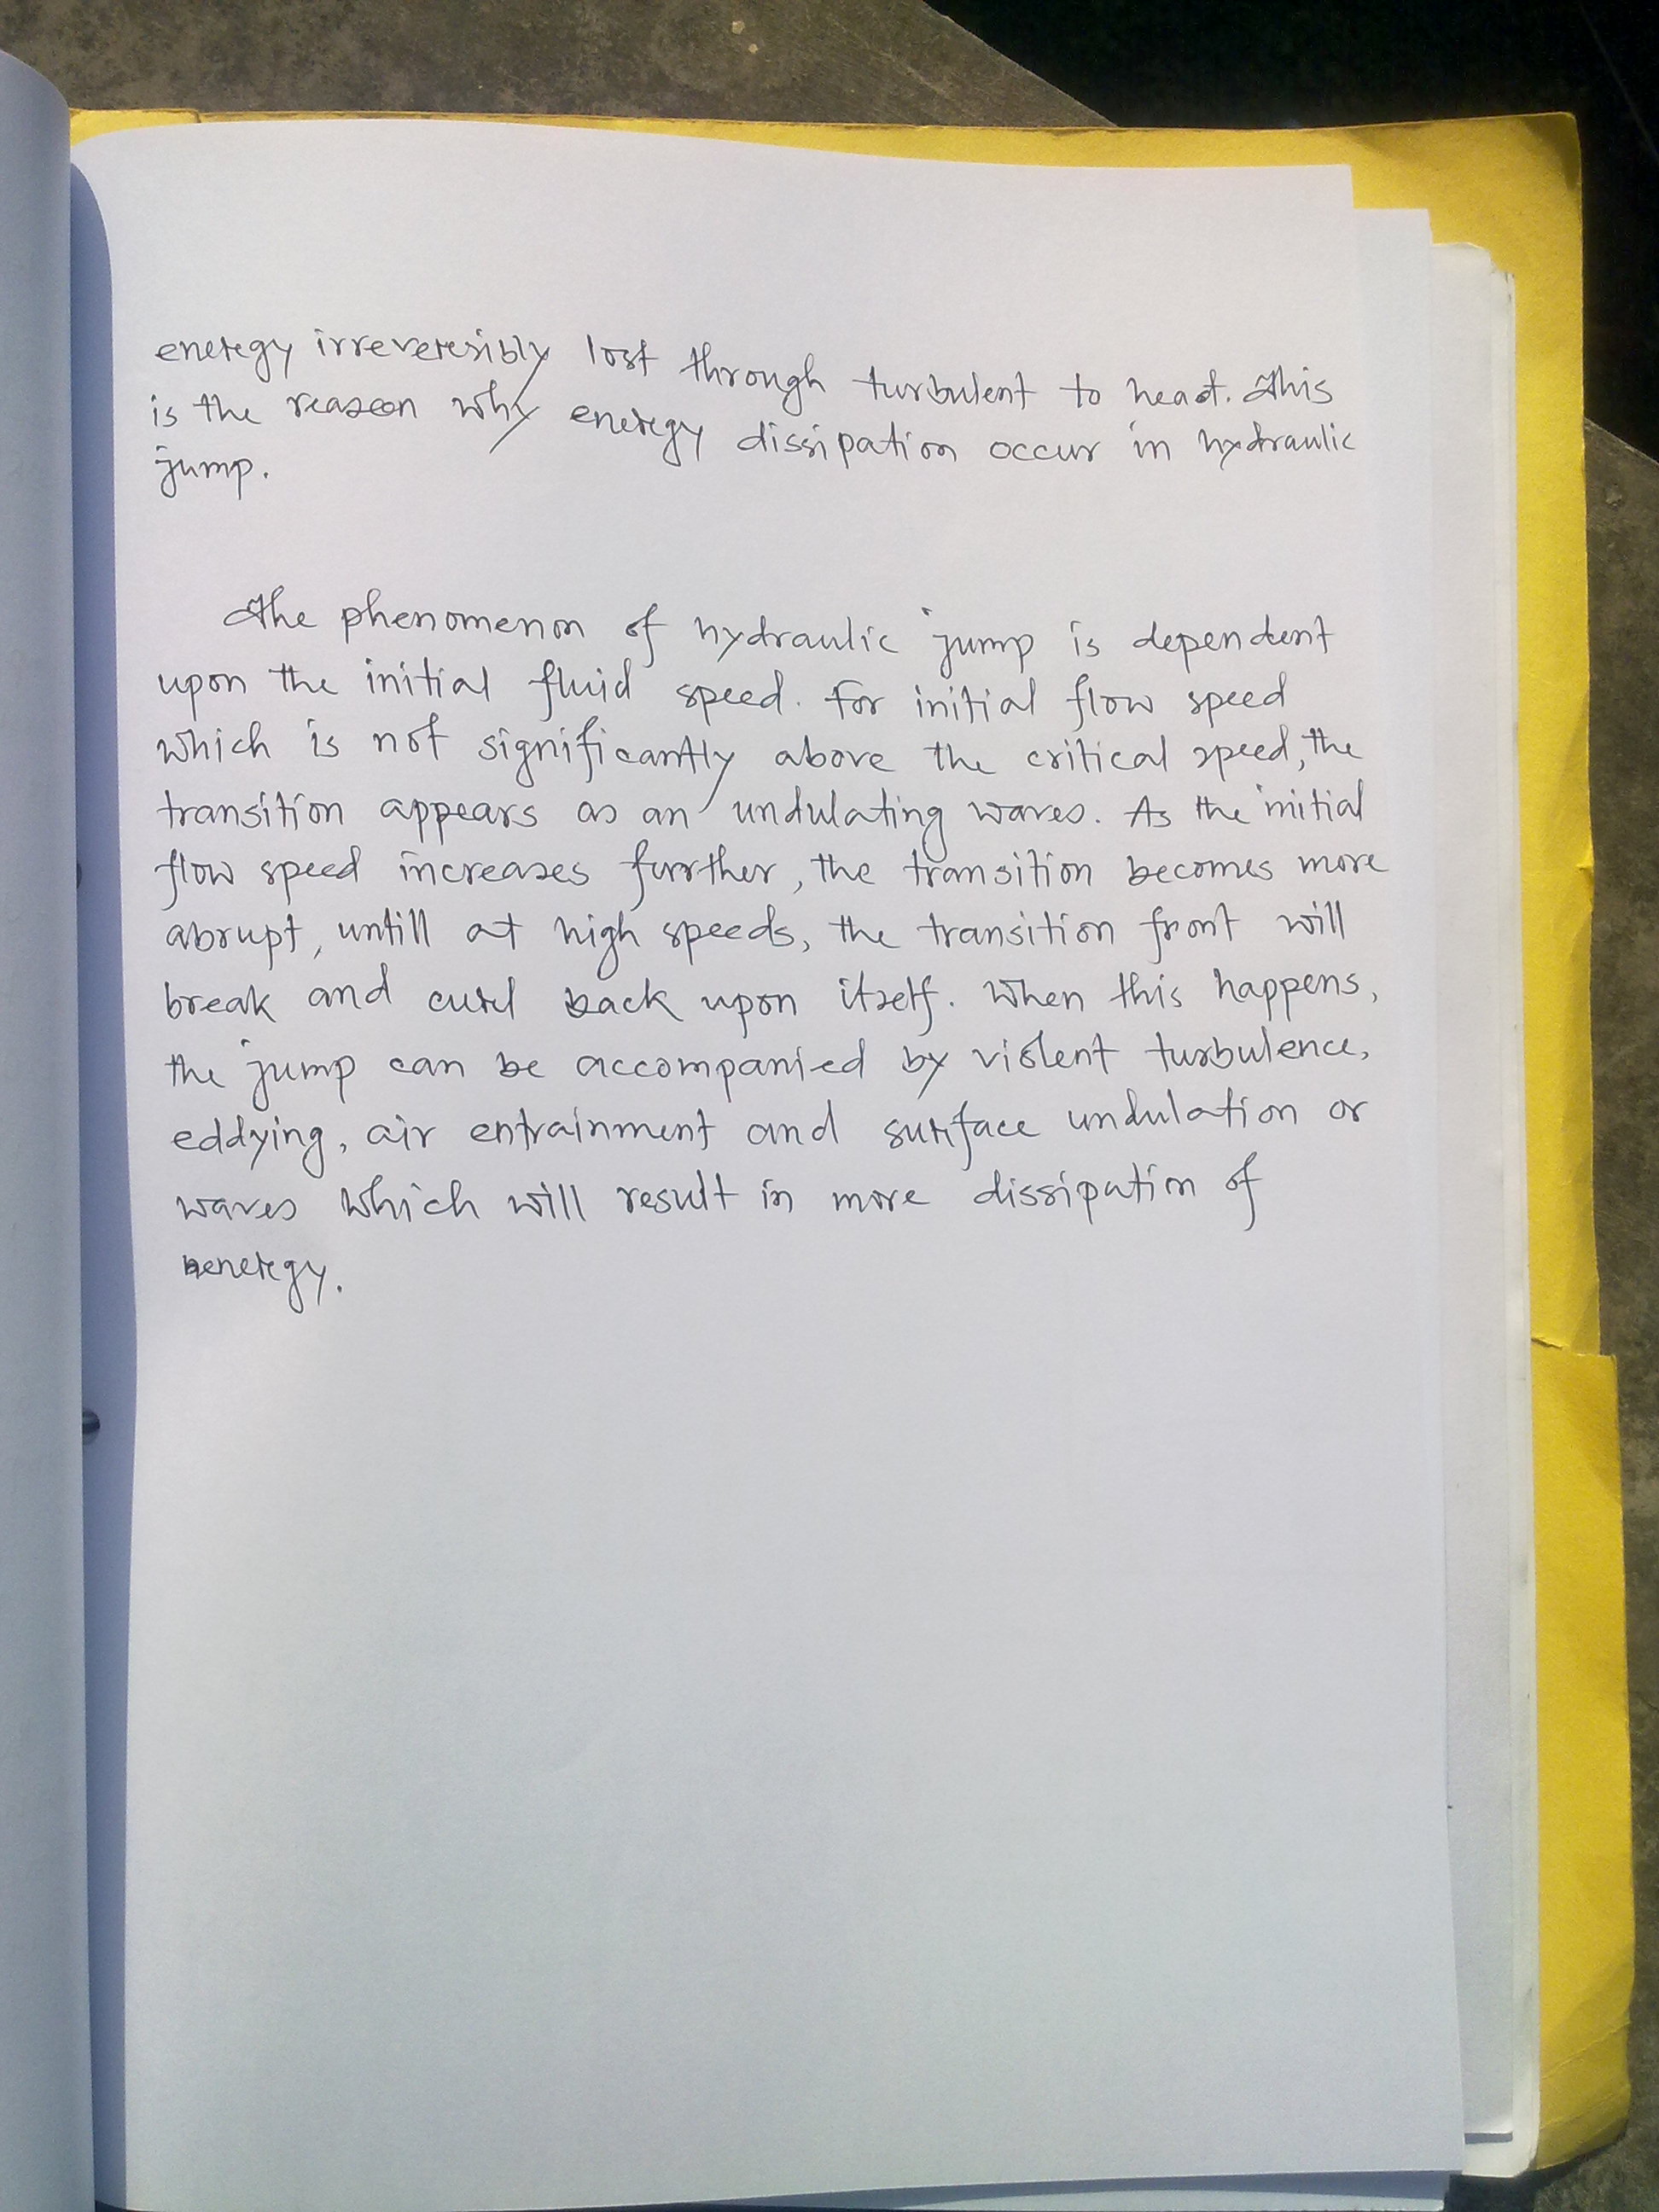 energy irreversibly lost through turbulent to heat. This
is the reason why energy dissipation occur in hydraulic
jump.
The phenomenon of hydraulic jump is dependent
upon the initial fluid speed. For initial flow speed
which is not significantly above the critical speed, the
transition appears as an undulating waves. As the initial
flow speed increases further, the transition becomes more
abrupt, untill at high speeds, the transition front will
break and curl back upon itself. When this happens,
the jump can be accompanied by violent turbulence,
eddying, air entrainment and surface undulation or
waves which will result in more dissipation of
energy.